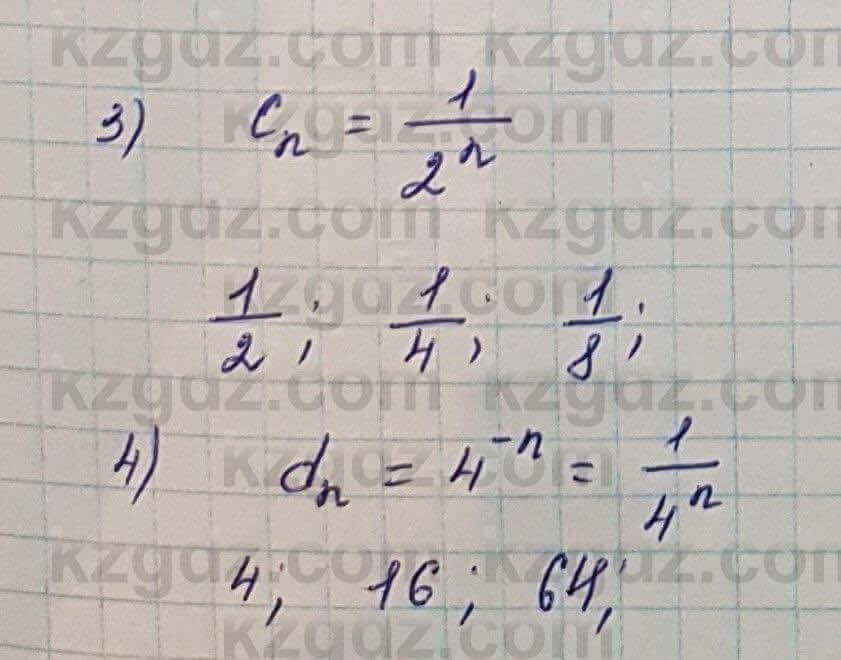 kzgdz.com kzgdz.com
3) Cₙ = 1/2ⁿ
kzgdz.com
kzgdz.com kzgdz.com
1/2; 1/4; 1/8;
kzgdz.com
kzgdz.com kzgdz.com
4) dₙ = 4⁻ⁿ = 1/4ⁿ
kzgdz.com
kzgdz.com kzgdz.com
4; 16; 64;
kzgdz.com